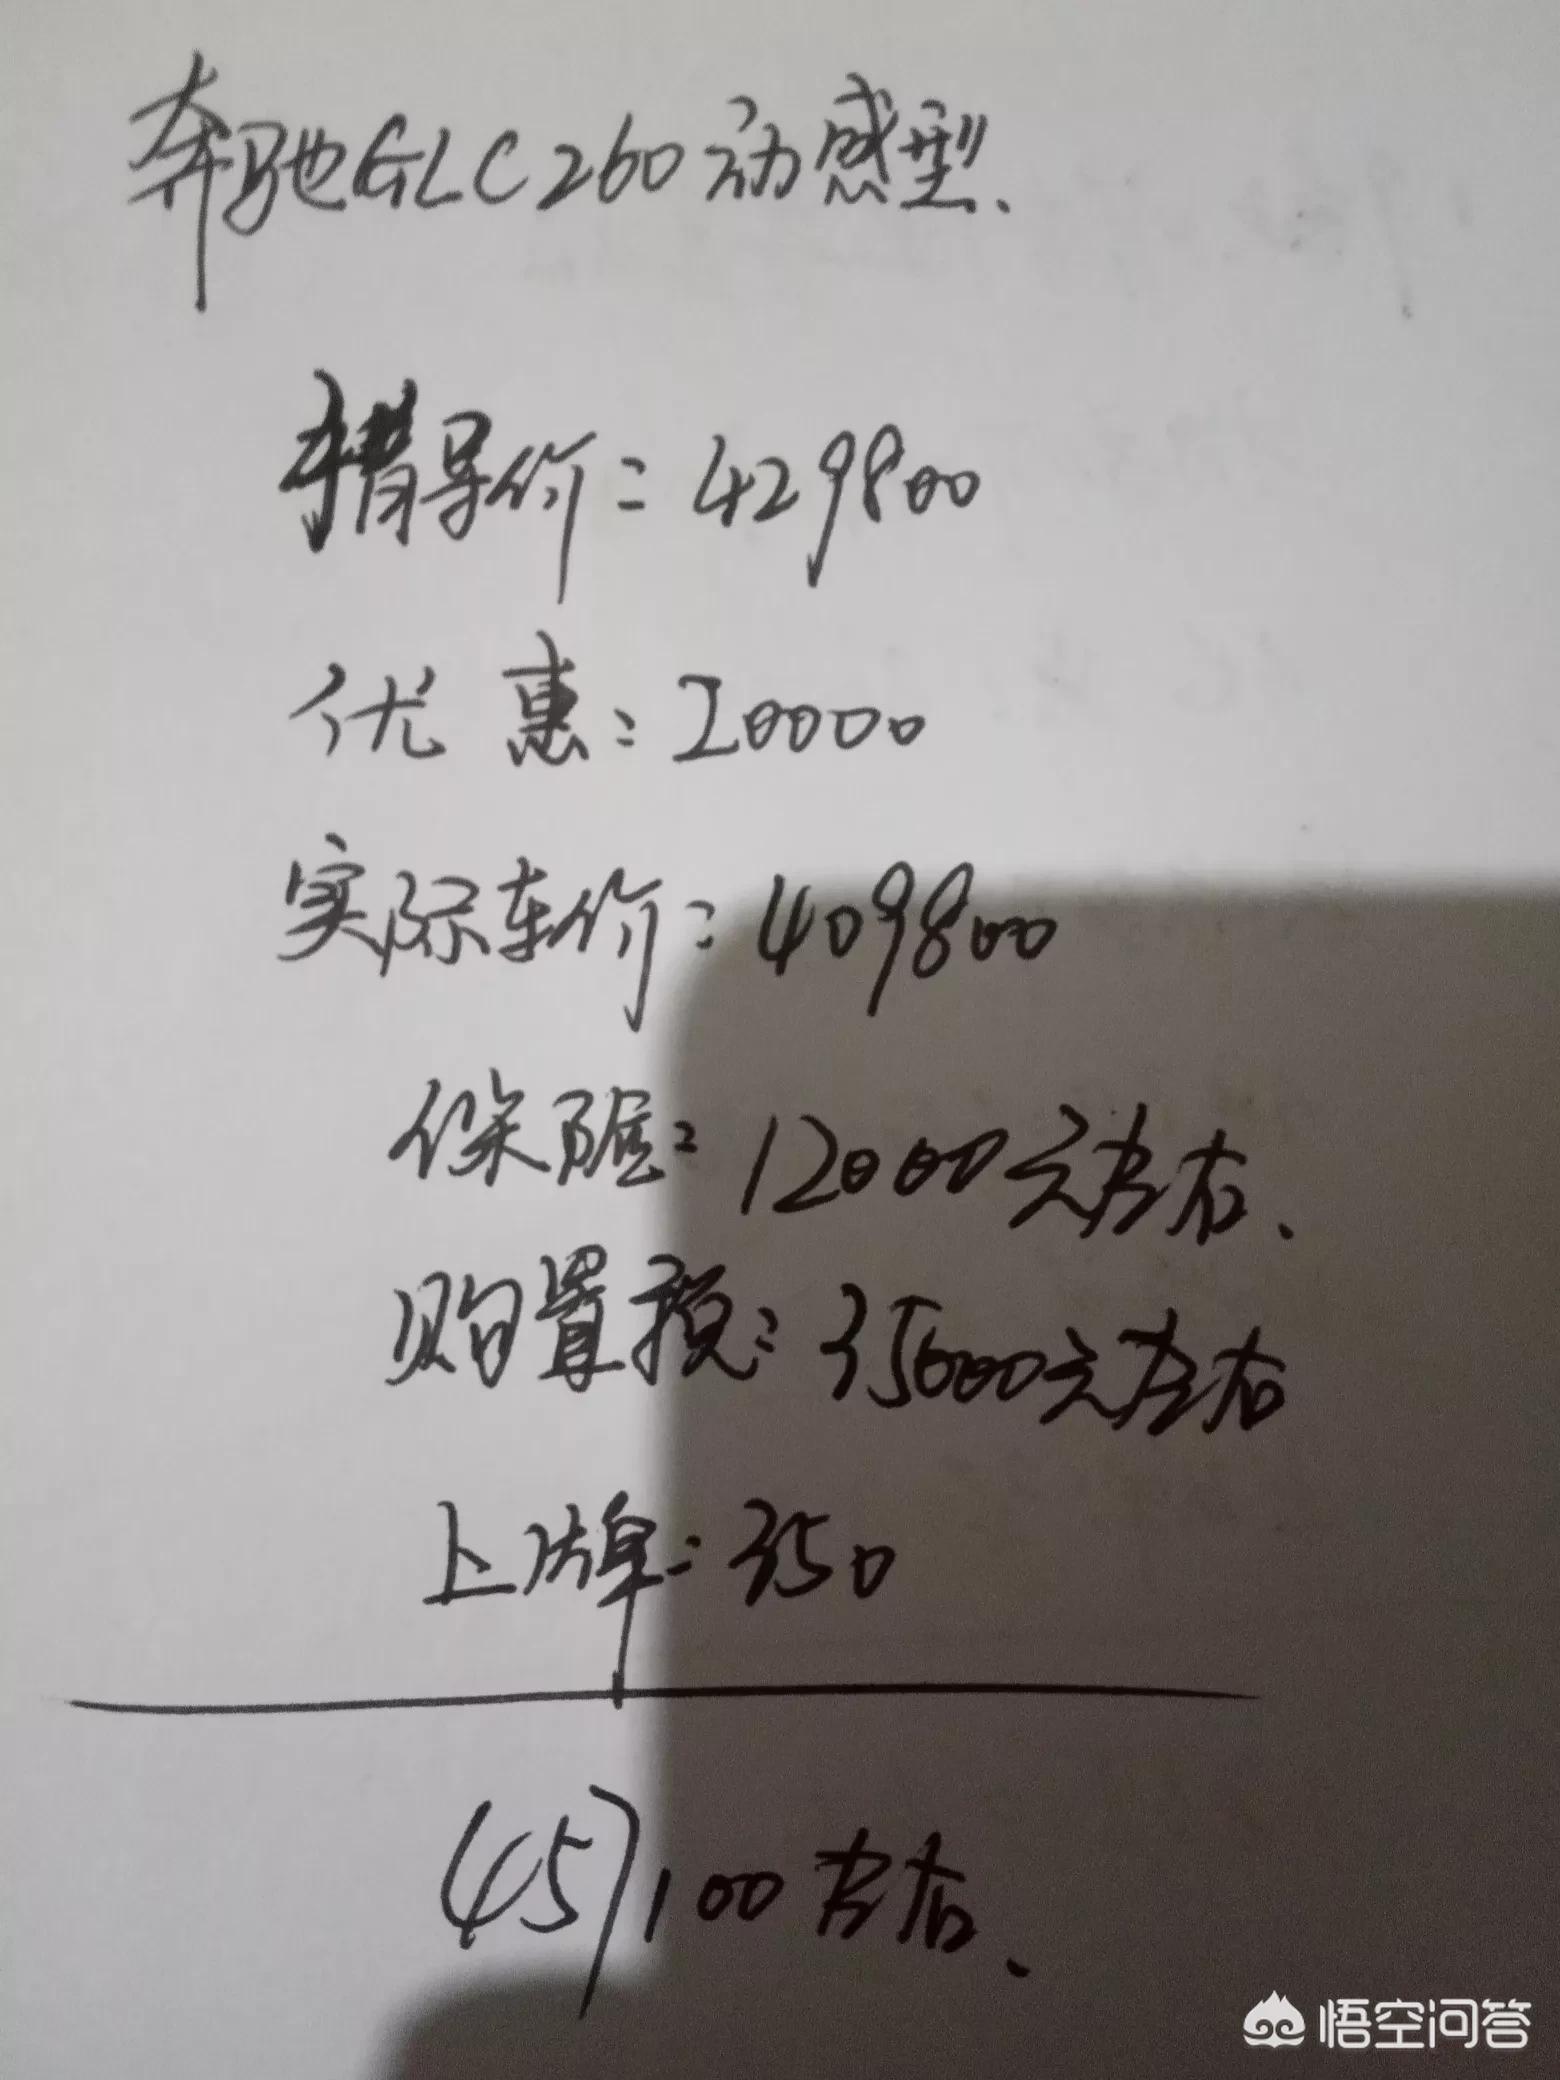 奔驰GLC260动感型.
指导价：429800
优惠：20000
实际车价：409800
保险：12000元左右.
购置税：35000元左右
上牌：350
457100左右.
悟空问答